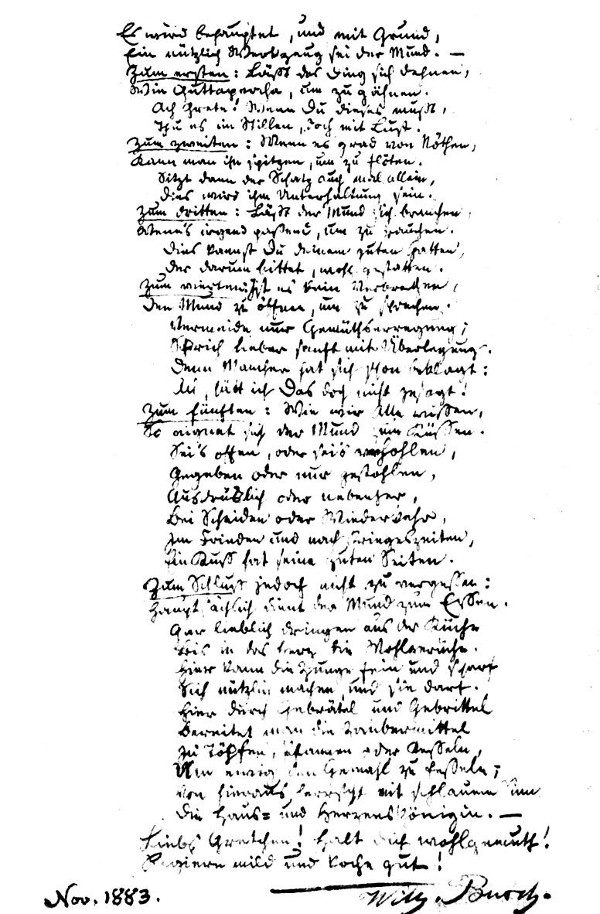 Es wird behauptet, und mit Grund,
Ein nützlich Werkzeug sei der Mund. —
Zum ersten: Läßt das Ding sich dehnen,
Wie Guttapercha, um zu gähnen.
Ach Grete! Wenn Du dieses mußt,
Thu es im Stillen, doch mit Lust.
Zum zweiten: Wenn es grad von Nöthen,
Kann man ihn spitzen, um zu flöten.
Sitzt dann der Schatz auch mal allein,
Dies wird ihm Unterhaltung sein.
Zum dritten: Läßt der Mund sich brauchen,
Wenn's irgend passend, um zu rauchen.
Dies kannst Du deinem guten Gatten,
Der darum bittet, wohl gestatten.
Zum vierten: ist es kein Verbrechen,
Den Mund zu öffnen, um zu sprechen.
Vermeide nur Gemüthserregung;
Sprich lieber sanft mit Überlegung.
Denn Mancher hat sich schon beklagt:
Ach, hätt ich Das doch nicht gesagt!
Zum fünften: Wie wir Alle wissen,
So eignet sich der Mund zum Küssen.
Sei's offen, oder sei's verhohlen,
Gegeben oder nur gestohlen,
Ausdrücklich oder nebenher,
Bei Scheiden oder Wiederkehr,
Im Frieden und nach Kriegeszeiten,
Ein Kuß hat seine guten Seiten.
Zum Schluß jedoch nicht zu vergessen:
Hauptsächlich dient der Mund zum Essen.
Gar lieblich dringen aus der Küche
Bis in das Herz die Wohlgerüche.
Hier kann die Zunge fein und scharf
Sich nützlich machen und sie darf.
Hier durch Gebrätel und Gebrittel
Bereitet man die Zaubermittel
In Töpfen, Pfannen oder Kesseln,
Um ewig den Gemahl zu fesseln;
Von hieraus herrscht mit schlauem Sinn
Die Haus= und Herzenskönigin. —
Liebs Gretchen! Halt Dich wohlgemuth!
Regiere mild und koche gut!
Nov. 1883. Wilh. Busch.